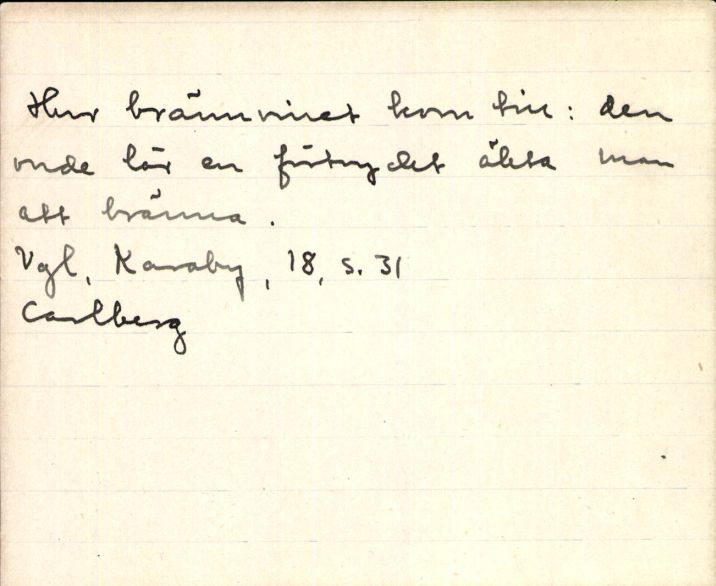 Hur brännvinet kom till: den
onde lär en förtryckt äkta man
att bränna.
Vgl, Karaby, 18, s. 31
Carlberg